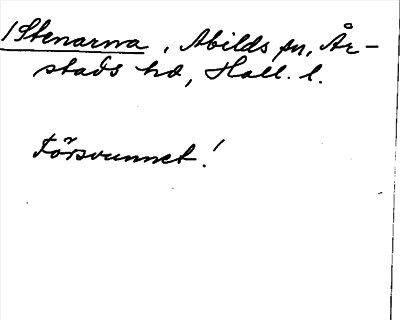 /Stenarna, Abilds sn, År-
stads hd, Hall. l.
Försvunnet!